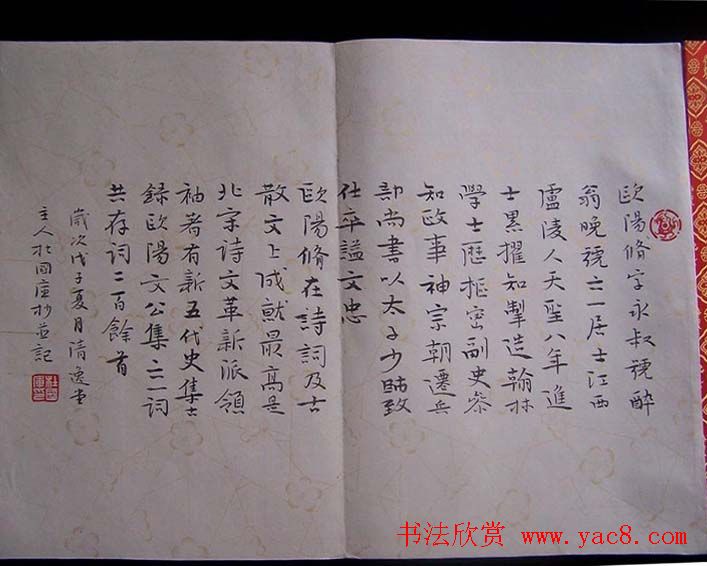 歐陽脩字永叔號醉
翁晚號六一居士江西
廬陵人天聖八年進
士累擢知掣造翰林
學士歷樞密副史參
知政事神宗朝遷兵
部尚書以太子少師致
仕卒謚文忠
歐陽脩在詩詞及古
散文上成就最高是
北宋詩文革新派領
袖著有新五代史集古
録歐陽文公集六一詞
共存詞二百餘首
歲次戊子夏月清逸堂
主人杜國庫抄並記
杜國庫印
书法欣赏 www.yac8.com